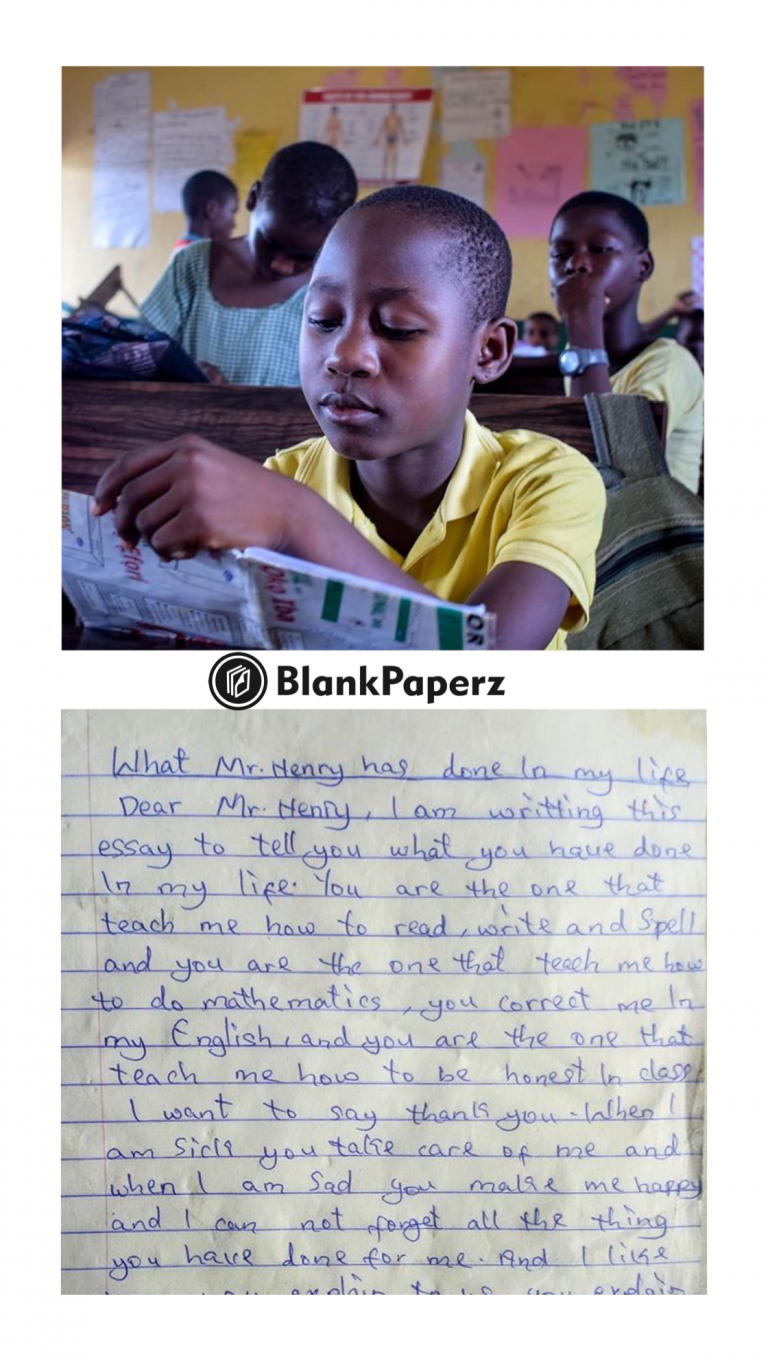 BlankPaperz
What Mr. Henry has done In my life
Dear Mr. Henry, I am writting this
essay to tell you what you have done
In my life. You are the one that
teach me how to read, write and Spell
and you are the one that teach me how
to do mathematics, you correct me In
my English, and you are the one that
teach me how to be honest In class.
I want to say thank you. When I
am Sick you take care of me and
when I am Sad you make me happy
and I can not forget all the thing
you have done for me. And I like